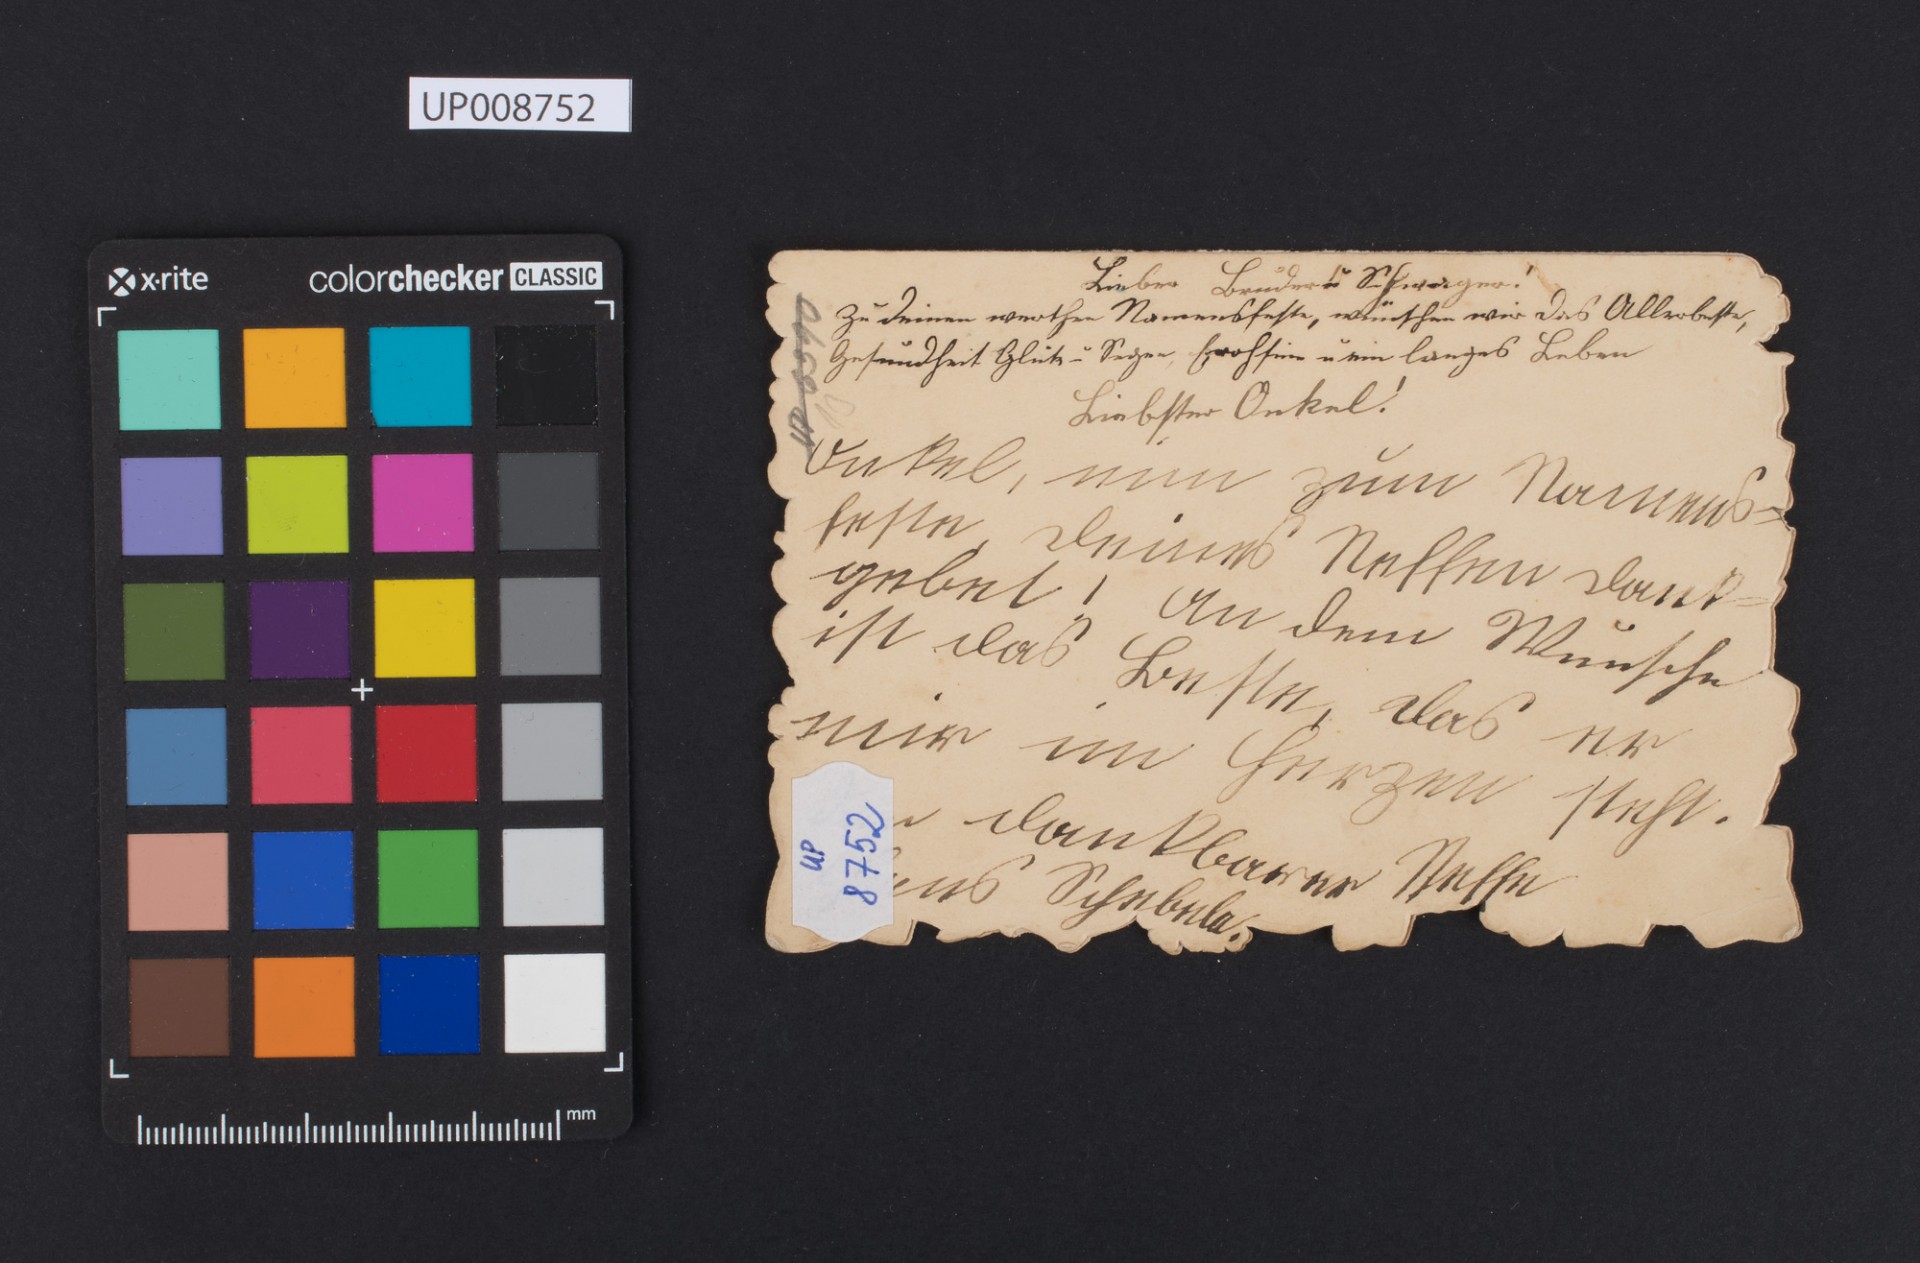 UP008752
x·rite
colorchecker CLASSIC
mm
Lieber Bruder u Schwager!
Zu deinen werthen Namensfeste, wünschen wir das Allerbeste,
Gesundheit Glük u Segen, Frohsinn u ein langes Leben
Liebster Onkel!
Onkel, nim zum Namens=
feste, deines Neffen Dank=
gebet! An dem Wunsche
ist das Beste, das er
mir im Herzen steht.
dankbarer Neffe
Schebela.
UP
8752